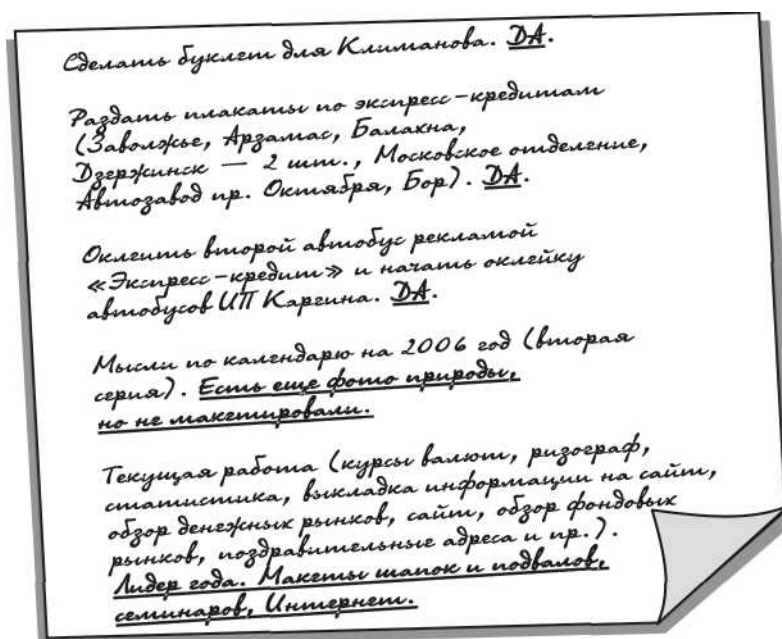 Сделать буклет для Климанова. ДА.
Раздать плакаты по экспресс-кредитам
(Заволжье, Арзамас, Балахна,
Дзержинск — 2 шт., Московское отделение,
Автозавод пр. Октября, Бор). ДА.
Оклеить второй автобус рекламой
«Экспресс-кредит» и начать оклейку
автобусов ИП Каргина. ДА.
Мысли по календарю на 2006 год (вторая
серия). Есть еще фото природы,
но не макетировали.
Текущая работа (курсы валют, ризограф,
статистика, выкладка информации на сайт,
обзор денежных рынков, сайт, обзор фондовых
рынков, поздравительные адреса и пр.).
Лидер года. Макеты шапок и подвалов,
семинаров, Интернет.